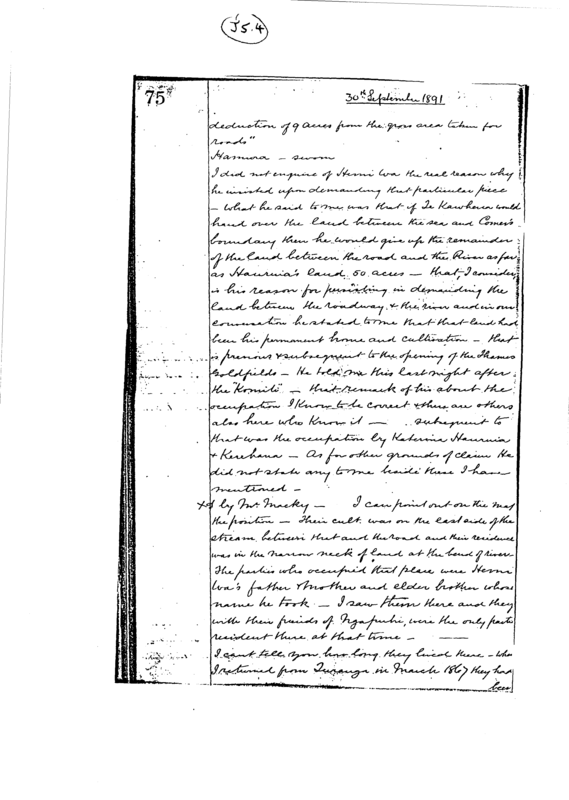 J5.4
75
30th September 1891
deduction of 9 acres from the gross area taken for
roads"
Hamiora - sworn
I did not enquire of Hemi Wa the real reason why
he insisted upon demanding that particular piece
- What he said to me was that if Te Kawhena would
hand over the land between the sea and Comer's
boundary then he would give up the remainder
of the land between the road and the River as far
as Hauruia's land 50 acres - that I consider
is his reason for persisting in demanding the
land between the roadway & the river and in our
conversation he stated to me that that land had
been his permanent home and cultivation - that
is previous & subsequent to the opening of the Thames
Goldfields - He told me this last night after
the "Komiti" - that remark of his about the
occupation I know to be correct & there are others
also here who know it - subsequent to
that was the occupation by Katerina Hauruia
& Kerehana - As for other grounds of claim He
did not state any to me beside these I have
mentioned -
by Mr Macky - I can point out on the map
the position - Their cult. was on the east side of the
stream between that and the road and their residence
was in the narrow neck of land at the bend of river
The parties who occupied that place were Hemi
Wa's father & mother and elder brother whose
name he took - I saw them there and they
with their friends of Ngapuhi, were the only parties
resident there at that time -
I can't tell you how long they lived there - when
I returned from Turanga in March 1867 they had
been